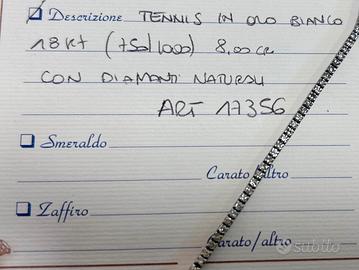 Descrizione TENNIS IN ORO BIANCO
18 KT (750/1000) 8,00 CR
CON DIAMANTI NATURALI
ART 17356
Smeraldo
Carato/altro
Zaffiro
Carato/altro
subito